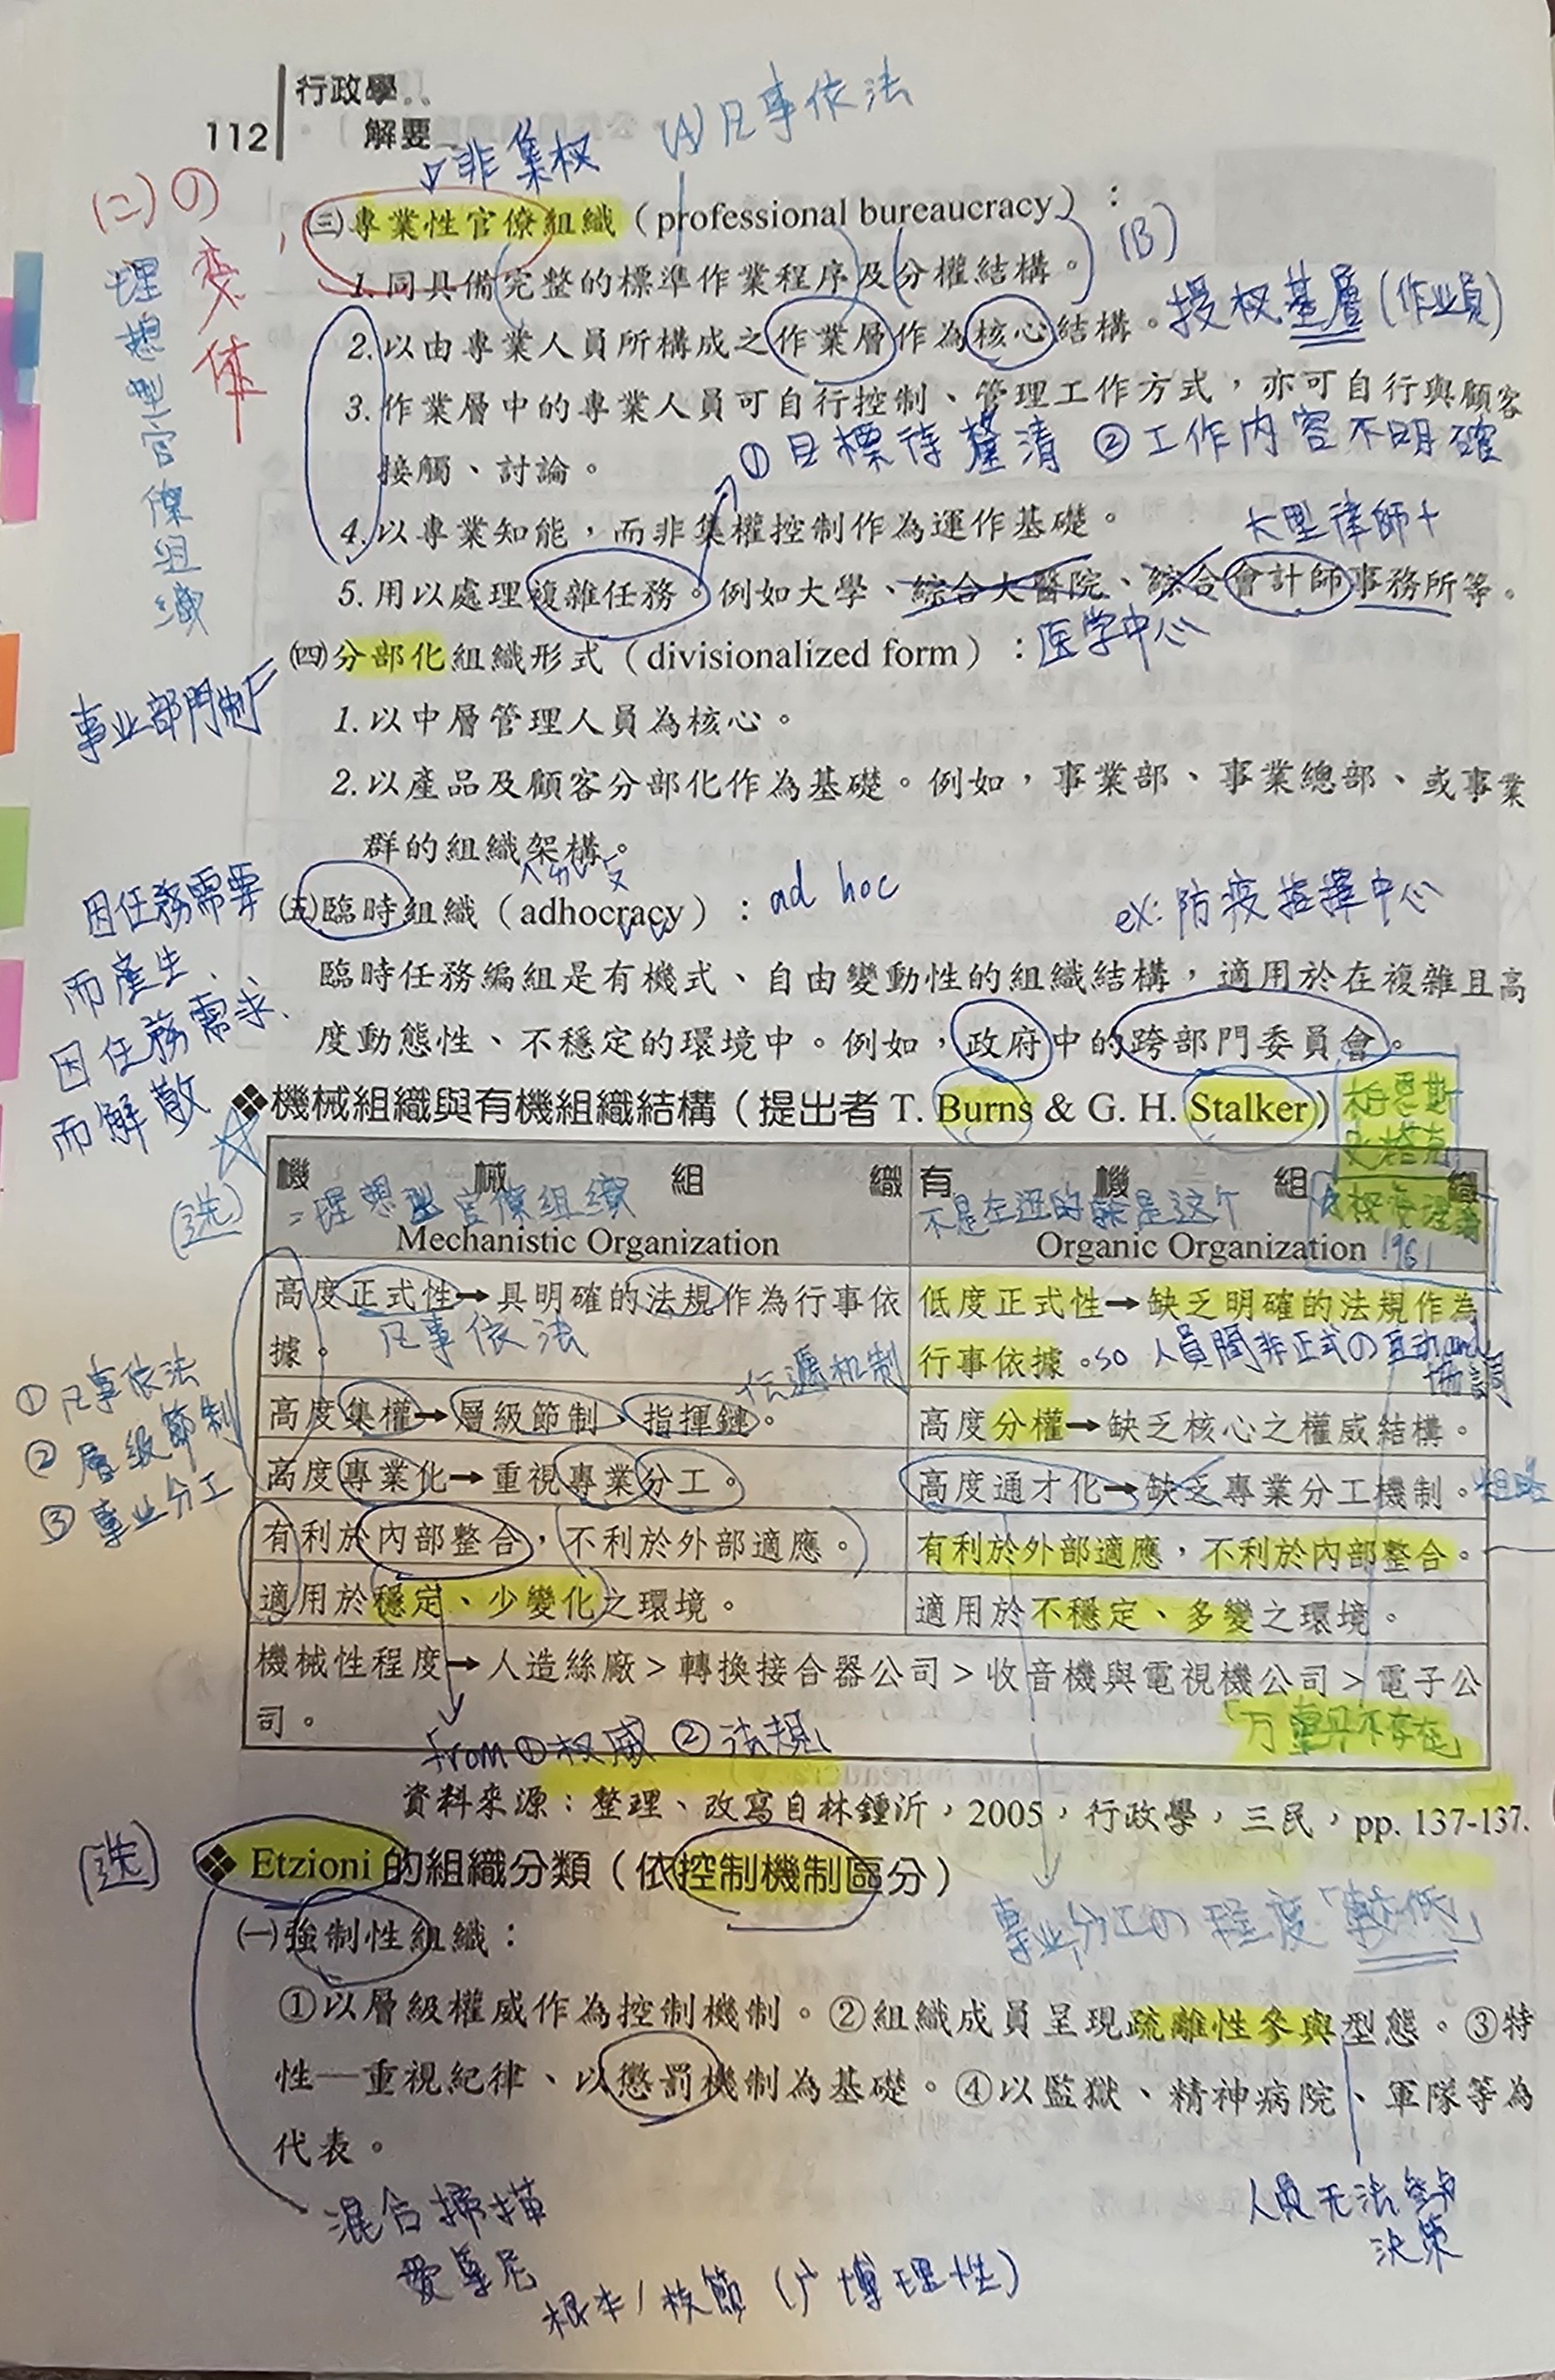 行政學
112 解要
(A)凡事依法
非集权
(二)の変体
理想型官僚組織
㈢專業性官僚組織（professional bureaucracy）：
(B)
1.同具備完整的標準作業程序及分權結構。
授权基層(作业員)
2.以由專業人員所構成之作業層作為核心結構。
3.作業層中的專業人員可自行控制、管理工作方式，亦可自行與顧客
①目標待釐清 ②工作內容不明確
接觸、討論。
4.以專業知能，而非集權控制作為運作基礎。
大型律師+
5.用以處理複雜任務。例如大學、綜合大醫院、綜合會計師事務所等。
医学中心
㈣分部化組織形式（divisionalized form）：
事业部門制
1.以中層管理人員為核心。
2.以產品及顧客分部化作為基礎。例如，事業部、事業總部、或事業
群的組織架構。
㈤臨時組織（adhocracy）：ad hoc
ex:防疫指揮中心
因任務需要
而產生、
因任務需求、
而解散
臨時任務編組是有機式、自由變動性的組織結構，適用於在複雜且高
度動態性、不穩定的環境中。例如，政府中的跨部門委員會。
❖機械組織與有機組織結構（提出者 T. Burns & G. H. Stalker）
(选)
機械組織 有機組織
=理想型官僚組織 不是左邊的就是这个
Mechanistic Organization Organic Organization 1961
高度正式性→具明確的法規作為行事依據。 低度正式性→缺乏明確的法規作為行事依據。
凡事依法
so 人員間非正式の互動and協調
①凡事依法
②層級節制
③專业分工
传遞机制
高度集權→層級節制、指揮鏈。 高度分權→缺乏核心之權威結構。
高度專業化→重視專業分工。 高度通才化→缺乏專業分工機制。
粗略
有利於內部整合，不利於外部適應。 有利於外部適應，不利於內部整合。
適用於穩定、少變化之環境。 適用於不穩定、多變之環境。
機械性程度→人造絲廠>轉換接合器公司>收音機與電視機公司>電子公
司。
「万靈丹不存在」
from①权威 ②法規
資料來源：整理、改寫自林鍾沂，2005，行政學，三民，pp. 137-137.
(选)
❖ Etzioni的組織分類（依控制機制區分）
專业分工の程度「較低」
㈠強制性組織：
①以層級權威作為控制機制。②組織成員呈現疏離性參與型態。③特
性──重視紀律、以懲罰機制為基礎。④以監獄、精神病院、軍隊等為
代表。
人員无法參与
決策
混合掃描
愛尊尼
根本/枝節 (广博理性)